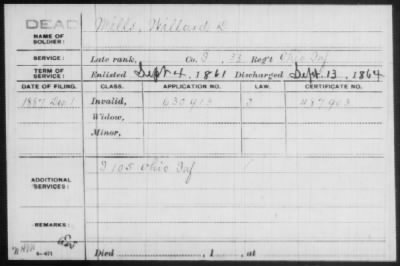 DEAD
Mills, Willard D
NAME OF SOLDIER:
SERVICE: Late rank, Co. I, 33 Reg't Ohio Inf
TERM OF SERVICE: Enlisted Sept 4, 1861 Discharged Sept. 13, 1864
DATE OF FILING. CLASS. APPLICATION NO. LAW. CERTIFICATE NO.
1887 Dec 1 Invalid, 632913 487903
Widow,
Minor,
ADDITIONAL SERVICES: I 105 Ohio Inf
REMARKS:
Died , 1 , at